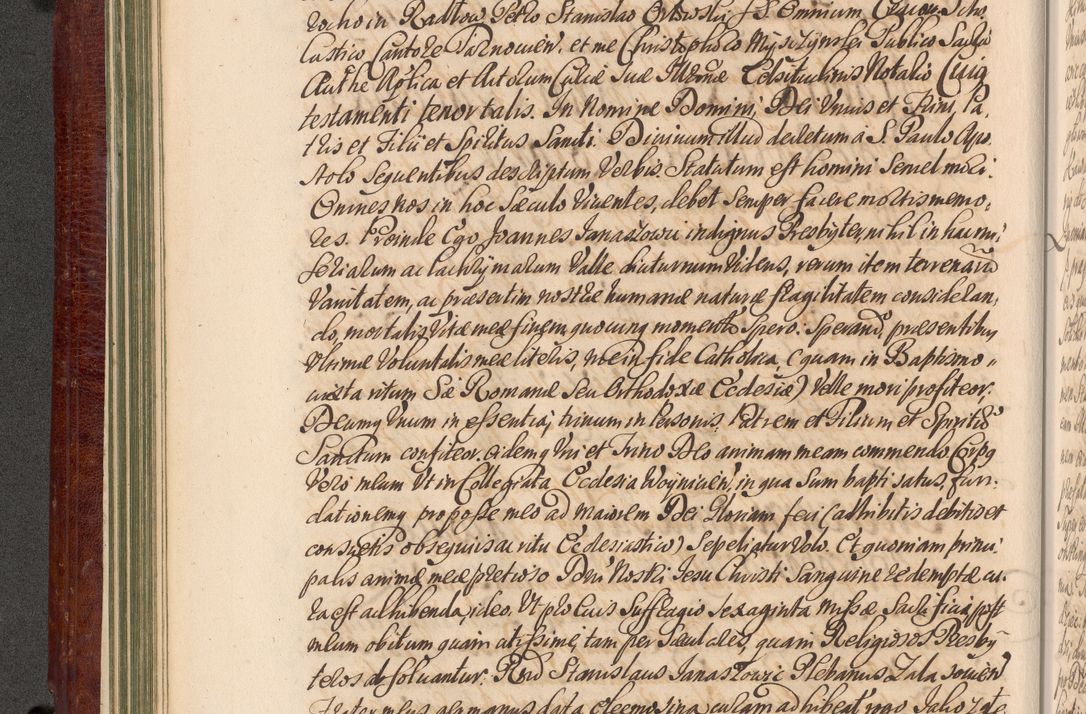 rocho in Radłow, Petro Stanislao Orłowski, S. Omnium, Scho,
lastico Cantore Tarnovien. et me Christophoro Myszynski Publico Sacra
Authe Aplica et Actorum Curiæ suæ Illmæ Celsitudinis Notario Cuiq
testamenti tenor talis. In Nomine Domini Dei Unius et Trini, Pa,
tris et Filii et Spiritus Sancti. Divinum illud decretum a S. Paulo Apo,
stolo sequentibus descriptum verbis Statutum est homini semel mori.
Omnes nos in hoc sæculo viventes, debet semper facere mortis memo,
res. Proinde Ego Joannes Janaszowic indignus Presbyter, nihil in hac mi,
seriarum ac lachrymarum valle diuturnum videns, rerum item terrenarū
vanitatem, ac præsertim nostræ humanæ naturæ fragilitatem consideran,
do, mortalis vitæ meæ finem quocunq momento spero. Sperando, præsentibus
ultimæ voluntatis meæ literis, me in fide Catholica, (quam in Baptismo
iuxta ritum Sæ Romanæ seu Orthodoxæ Ecclesiæ) velle mori profiteor.
Deumq Unum in essentia, trinum in Personis, Patrem et Filium et Spiritū
Sanctum confiteor. eidemq Uni et Trino Deo animam meam commendo Corpq
vero meum ut in Collegiata Ecclesia Woynicien, in qua sum baptisatus, fun,
dationemq pro posse meo ad maiorem Dei Gloriam feci (adhibitis debitis et
consuetis obsequiis ac ritu Ecclesiastico) sepeliatur volo. Et quoniam princi,
palis animæ meæ pretioso Dni Nostri Jesu Christi Sanguine redemptæ cu,
ra est adhibenda, ideo. Ut pro Eius Suffragio sexaginta Missæ Sacrificia, post
meum obitum quam citissime, tam per Sæculares, quam Religiosos Presby
teros absolvantur. Rnd Stanislaus Janaszowic Plebanus Zalasovien
Frater meus germanus data eleemosina curam adhibeat